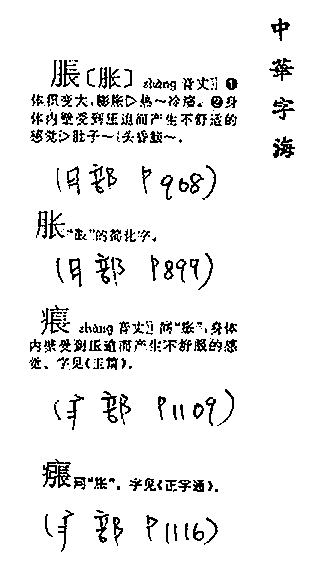 中華字海
脹〔胀〕zhàng 音丈 ❶
体积变大,膨胀▷热~冷缩。❷身
体内壁受到压迫而产生不舒适的
感觉▷肚子~|头昏脑~。
(月部 P968)
胀"脹"的简化字。
(月部 P899)
痮 zhàng 音丈 同"胀",身体
内壁受到压迫而产生不舒服的感
觉。字见《玉篇》。
(疒部 P1109)
同"胀"。字见《正字通》。
(疒部 P1116)